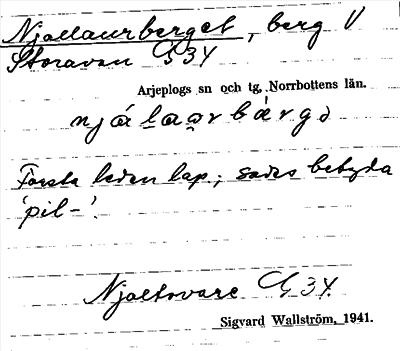 Njallaurberget, berg V
Storavan G 34
Arjeplogs sn och tg, Norrbottens län.
njálaạrbárgə
Första leden lap; sades betyda
'pil-'.
Njaltovare G 34.
Sigvard Wallström, 1941.